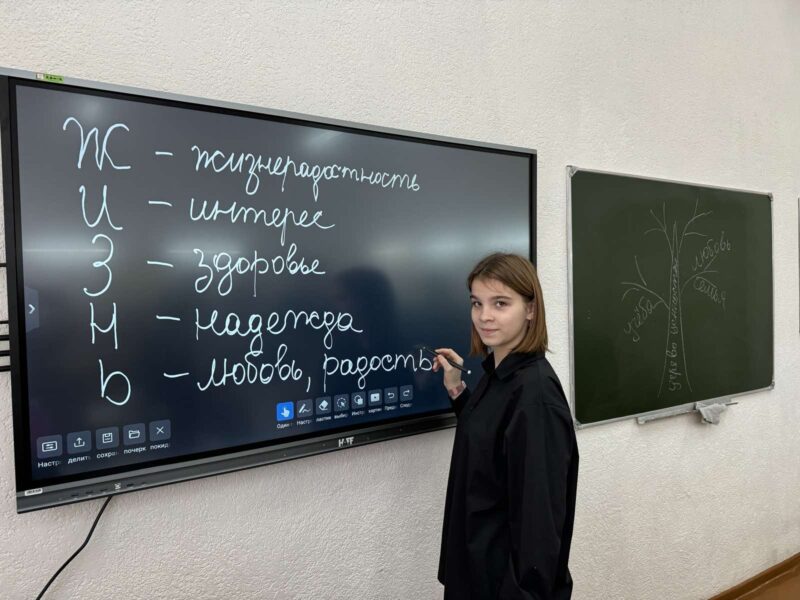 Ж - жизнерадостность
И - интерес
З - здоровье
Н - надежда
Ь - любовь, радость
делить
сохра
почерк
покид
Один
Настр
ластик
выбир
Инстр
картин
Пред
След
любовь
семья
учёба
дерево